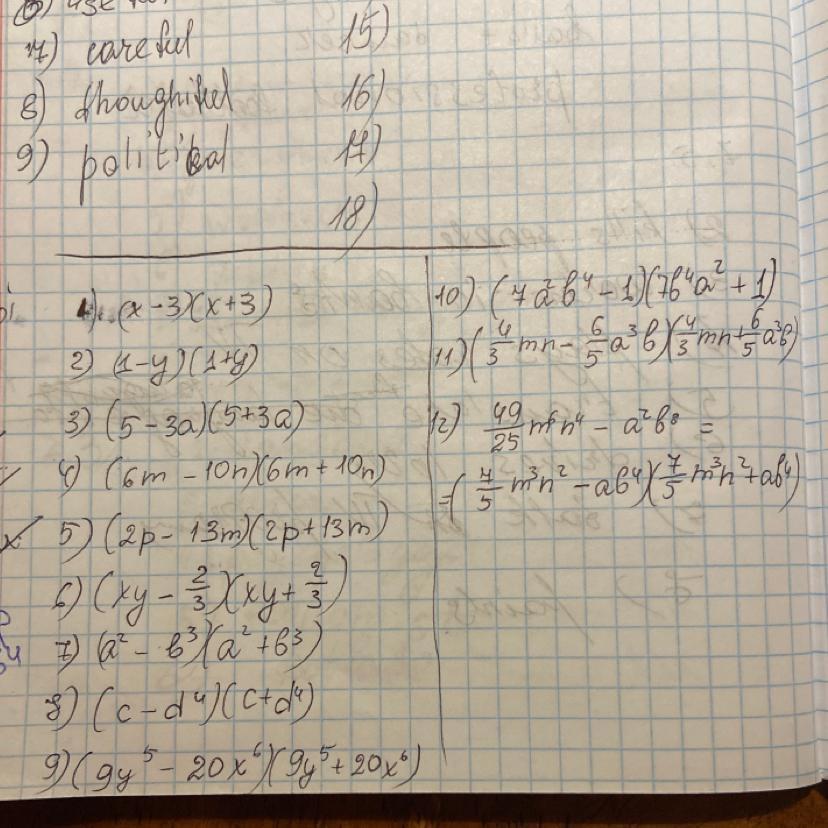 7) careful
8) thoughitful
9) political
15)
16)
17)
18)
1) (x - 3)(x + 3)
2) (1 - y)(1 + y)
3) (5 - 3a)(5 + 3a)
4) (6m - 10n)(6m + 10n)
5) (2p - 13m)(2p + 13m)
6) (xy - 2/3)(xy + 2/3)
7) (a² - b³)(a² + b³)
8) (c - d⁴)(c + d⁴)
9) (9y⁵ - 20x⁶)(9y⁵ + 20x⁶)
10) (7a²b⁴ - 1)(7b⁴a² + 1)
11) (4/3 mn - 6/5 a³b)(4/3 mn + 6/5 a³b)
12) 49/25 m⁶n⁴ - a²b⁸ =
= (7/5 m³n² - ab⁴)(7/5 m³n² + ab⁴)